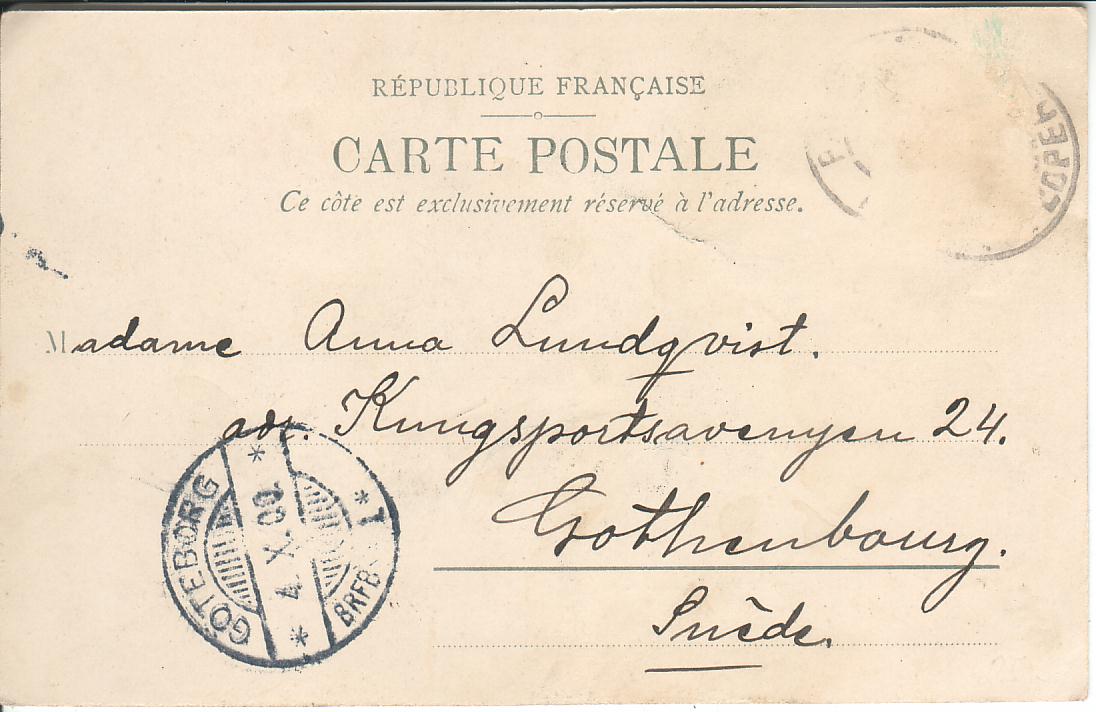 RÉPUBLIQUE FRANÇAISE
CARTE POSTALE
Ce côte est exclusivement réservé à l'adresse.
Madame Anna Lundqvist.
adr. Kungsportsavenyen 24.
Gothenbourg.
Suède.
GÖTEBORG
4. X. 00.
1
BRFB